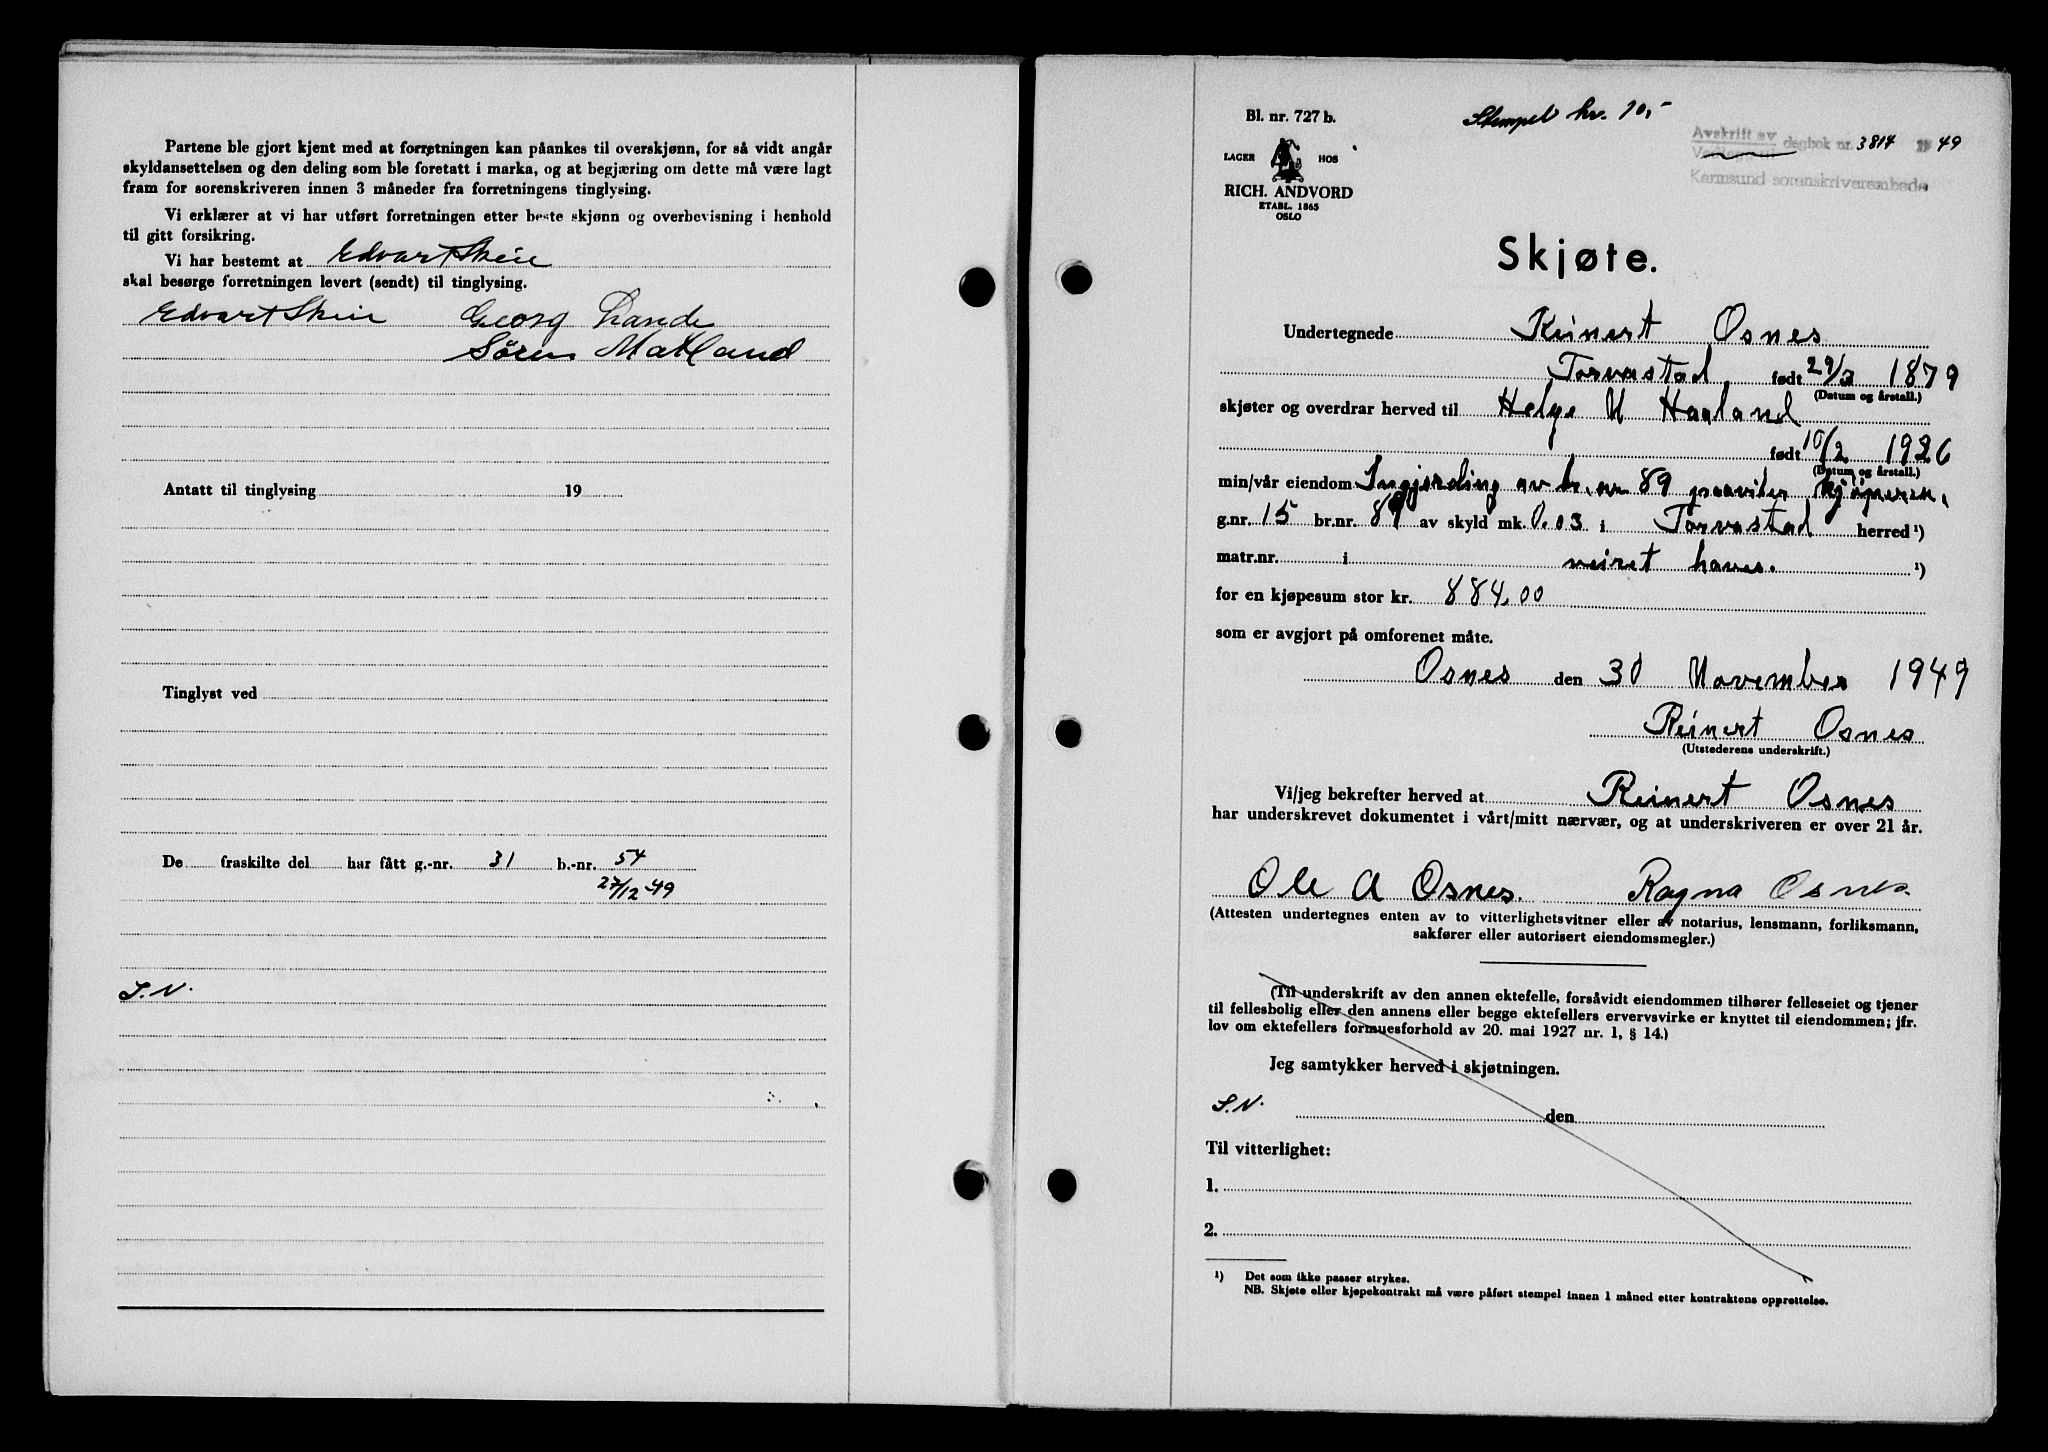 Partene ble gjort kjent med at forretningen kan påankes til overskjønn, for så vidt angår
skyldansettelsen og den deling som ble foretatt i marka, og at begjæring om dette må være lagt
fram for sorenskriveren innen 3 måneder fra forretningens tinglysing.
Vi erklærer at vi har utført forretningen etter beste skjønn og overbevisning i henhold
til gitt forsikring.
Vi har bestemt at Edvart Skeie
skal besørge forretningen levert (sendt) til tinglysing.
Edvart Skeie Georg Lande
Sören Matland
Antatt til tinglysing 19
Tinglyst ved
De fraskilte del har fått g.-nr. 31 b.-nr. 54
27/12 49
S.N.
Bl. nr. 727 b.
Stempel kr. 10,-
Avskrift av
dagbok nr. 3814 1949
Karmsund sorenskriverembede
LAGER HOS
RICH. ANDVORD
ETABL. 1865
OSLO
Skjøte.
Undertegnede Reinert Osnes
Torvastad født 29/3 1879
(Datum og årstall.)
skjøter og overdrar herved til Helge N Haaland
født 10/2 1926
(Datum og årstall.)
min/vår eiendom av br. nr 89
g.nr. 15 br.nr. 89 av skyld mk. 0.03 i Torvastad herred ¹)
matr.nr. i veiret haves. ¹)
for en kjøpesum stor kr. 884,00
som er avgjort på omforenet måte.
Osnes den 30 November 1949
Reinert Osnes
(Utstederens underskrift.)
Vi/jeg bekrefter herved at Reinert Osnes
har underskrevet dokumentet i vårt/mitt nærvær, og at underskriveren er over 21 år.
Ole A Osnes. Ragna Osnes.
(Attesten undertegnes enten av to vitterlighetsvitner eller av notarius, lensmann, forliksmann,
sakfører eller autorisert eiendomsmegler.)
(Til underskrift av den annen ektefelle, forsåvidt eiendommen tilhører felleseiet og tjener
til fellesbolig eller den annens eller begge ektefellers ervervsvirke er knyttet til eiendommen; jfr.
lov om ektefellers formuesforhold av 20. mai 1927 nr. 1, § 14.)
Jeg samtykker herved i skjøtningen.
S.N. den
Til vitterlighet:
1.
2.
¹) Det som ikke passer strykes.
NB. Skjøte eller kjøpekontrakt må være påført stempel innen 1 måned etter kontraktens opprettelse.